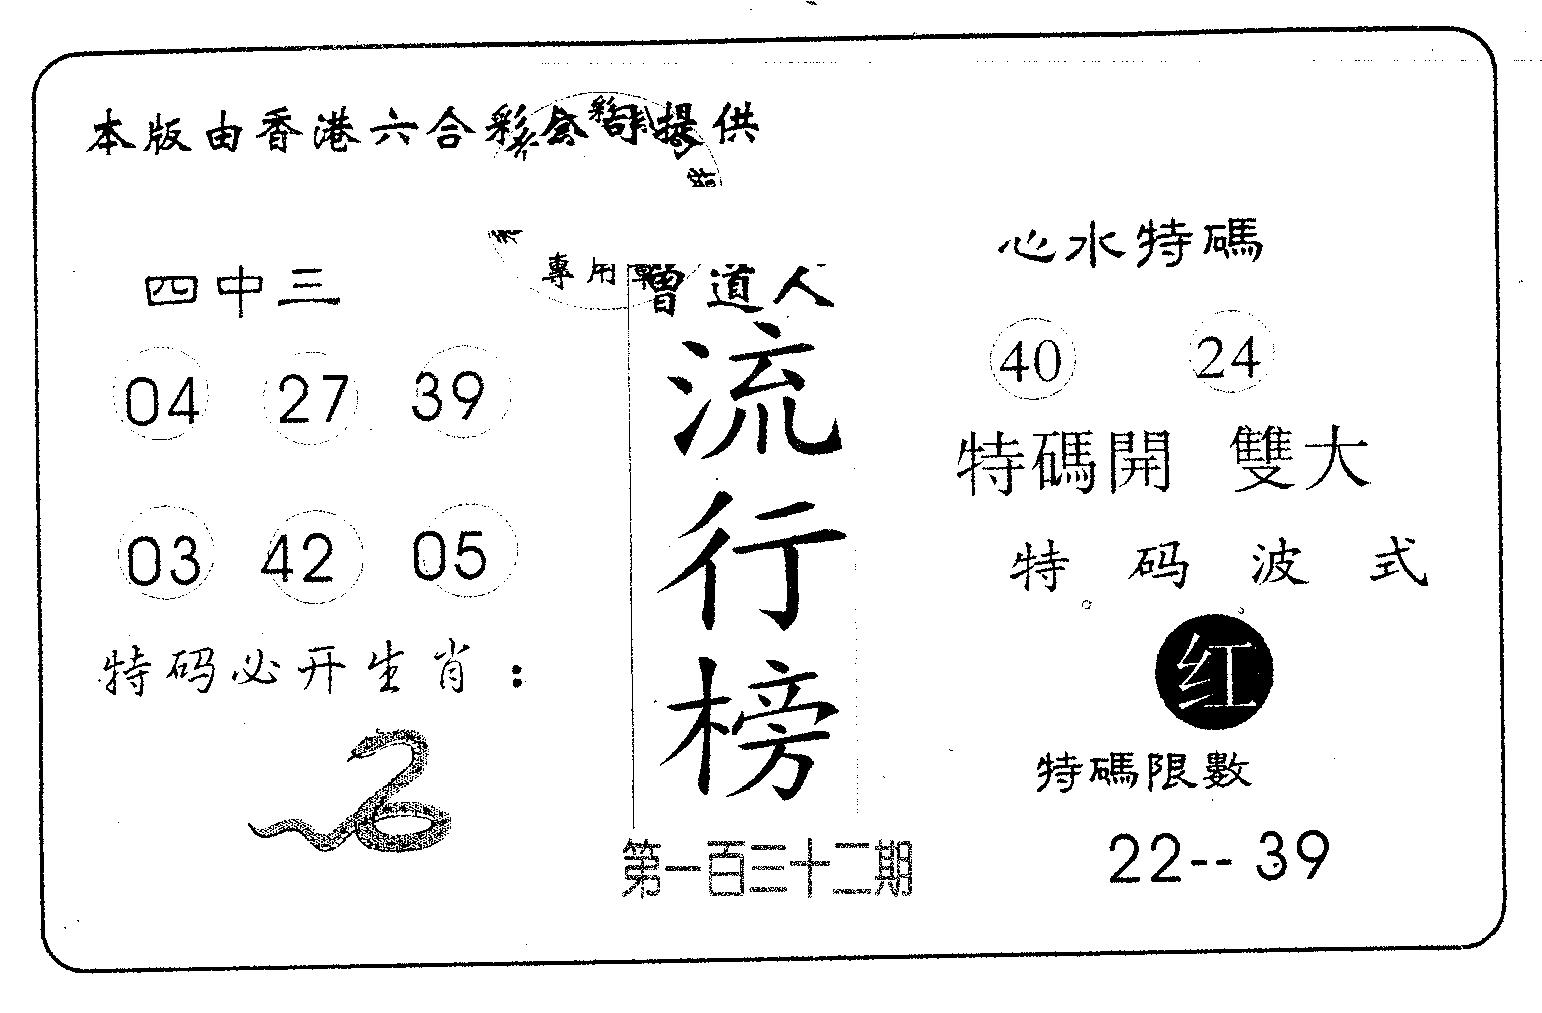 本版由香港六合彩公司提供
四中三
04 27 39
03 42 05
特码必开生肖：
專用章
曾道人
流行榜
第一百三十二期
心水特碼
40 24
特碼開 雙大
特码波式
红
特碼限數
22-- 39